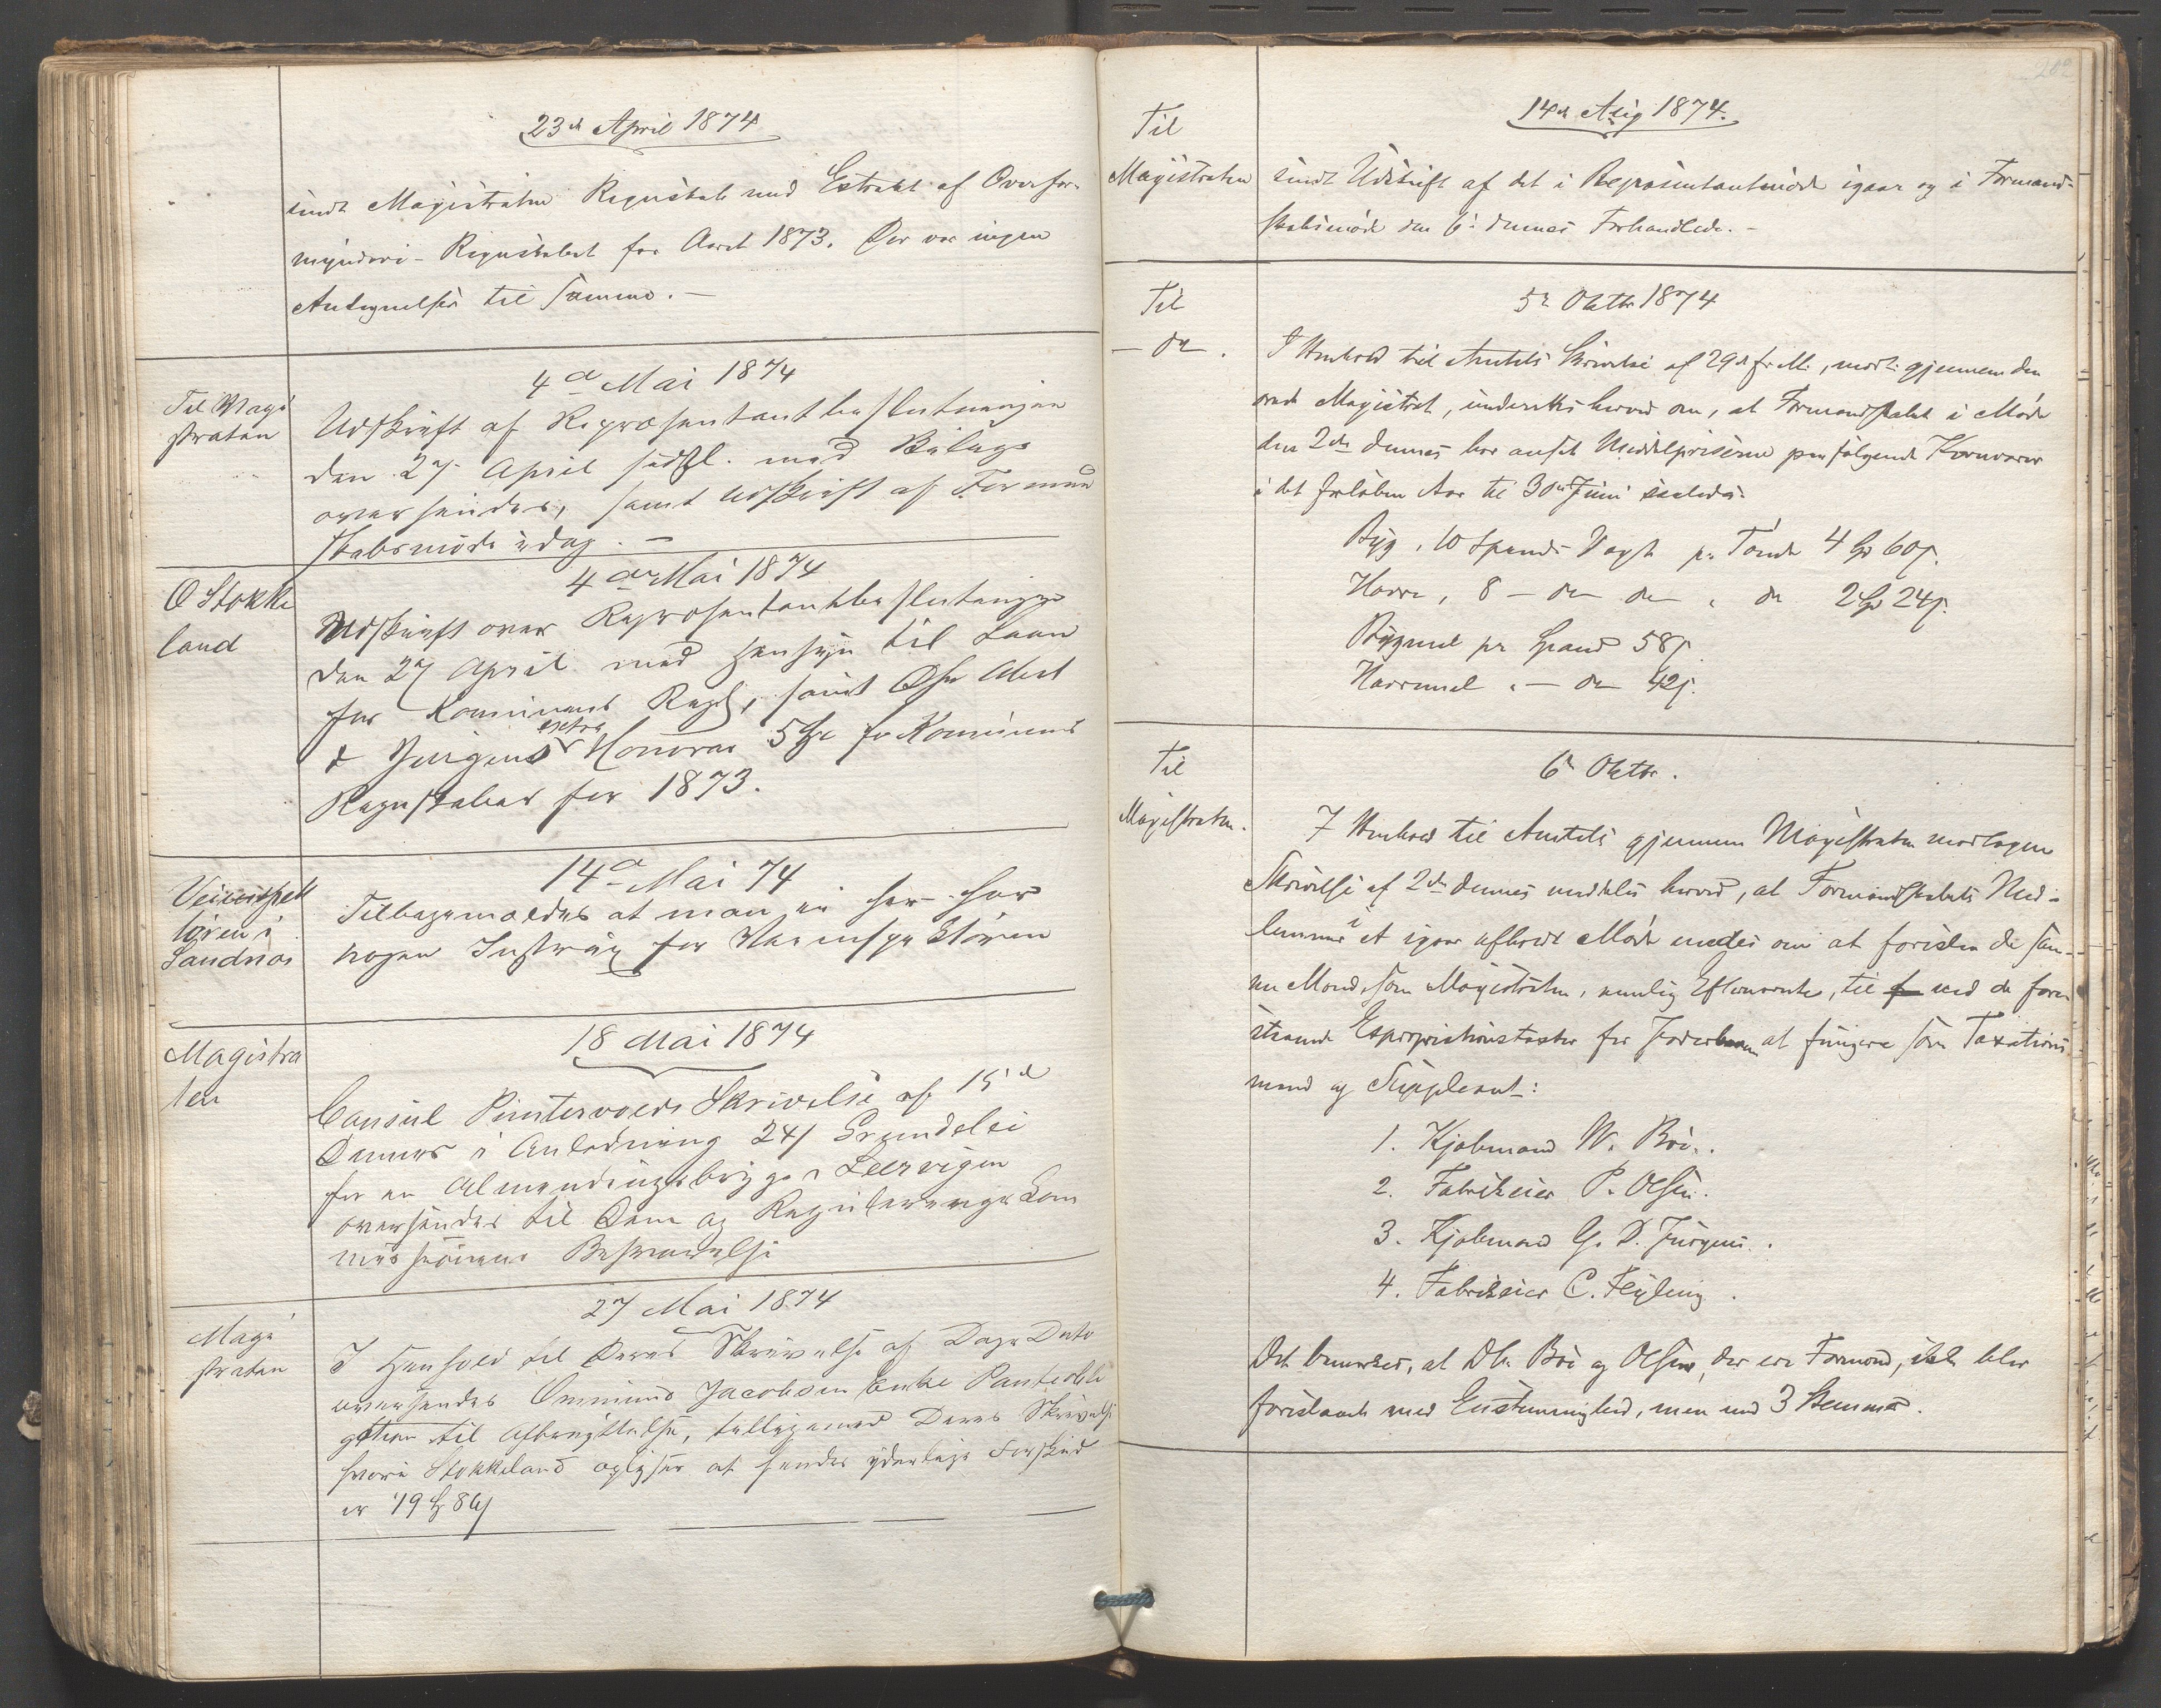 23de April 1874
sendt Magistraten Regnskab med Extrakt af Overfor-
mynderi-Regnskabet for Aaret 1873. Der var ingen
Antegnelser til samme. -
Til Magi
straten
4de Mai 1874
Udskrift af Repræsentantbeslutningen
den 27 April sidstl. med Bilage
oversendes, samt Udskrift af Formand
skabsmöde idag. -
O Stokke
land
4de Mai 1874
Udskrift over Repræsentantbeslutninge
den 27 April med Hensyn til Laan
for Kommunens Regn, samt
& Jürgens extra Honorar 5 for Kommunens
Regnskaber for 1873.
Veiinspek
tören i
Sandnæs
14de Mai 74
Tilbagemeldes at man ei her har
nogen Instrux for Veiinspektören
Magistra
ten
18 Mai 1874
Consul Puntervolds Skrivelse af 15de
Dennes i Anledning 24 Grundeleie
for en Almendingsbrygge i Leervigen
oversendes til Dem og Reguleringskom
missionens Besvarelse
Magi
straten
27 Mai 1874
I Henhold til Deres Skrivelse af Dags Dato
oversendes Ommund Jacobsen Enke Panteobli
gation til Afbenyttelse, tilligemed Deres Skrivelse
hvori Stokkeland oplyser at hendes yderlige Forskud
er 19
Til
Magistraten
14de Aug 1874.
sendt Udskrift af det i Repræsentantmöde igaar og i Formand-
skabsmöde den 6te dennes Forhandlede. -
Til
- do .
5te Oktbr 1874
I Henhold til Amtets Skrivelse af 29de f. M., modt. gjennem den
ærede Magistrat, underrettes herved om, at Formandskabet i Möde
den 2den dennes har ansat Middelpriserne paa fölgende Kornvarer
i det forlöbne Aar til 30te Juni saaledes:
Byg, 10 Spands Vægt pr. Tönde 4 Spd 60 s.
Havre, 8 - do do " do 2 Spd 24 s.
Bygmel pr Spand 58 s
Havremel " - do 42 s.
Til
Magistraten.
6te Oktbr.
I Henhold til Amtets gjennem Magistraten modtagne
Skrivelse af 2den dennes meddeles herved, at Formandskabets Med-
lemmer i et igaar afholdt Möde enedes om at foreslaa de sam-
me Mænd, som Magistraten, nemlig Efternævnte, til ved de fore-
staaende Expropriationstaxter for Jæderbanen at fungere som Taxations
mænd og Suppleant:
1. Kjöbmand W. Böe.
2. Fabrikeier P. Olsen.
3. Kjöbmand G. D. Jürgens.
4. Fabrikeier C. Feyling.
Det bemærkes, at Dhr. Böe og Olsen, der ere Formænd, ikke blev
foreslaaede med Enstemmighed, men med 3 Stemmer.